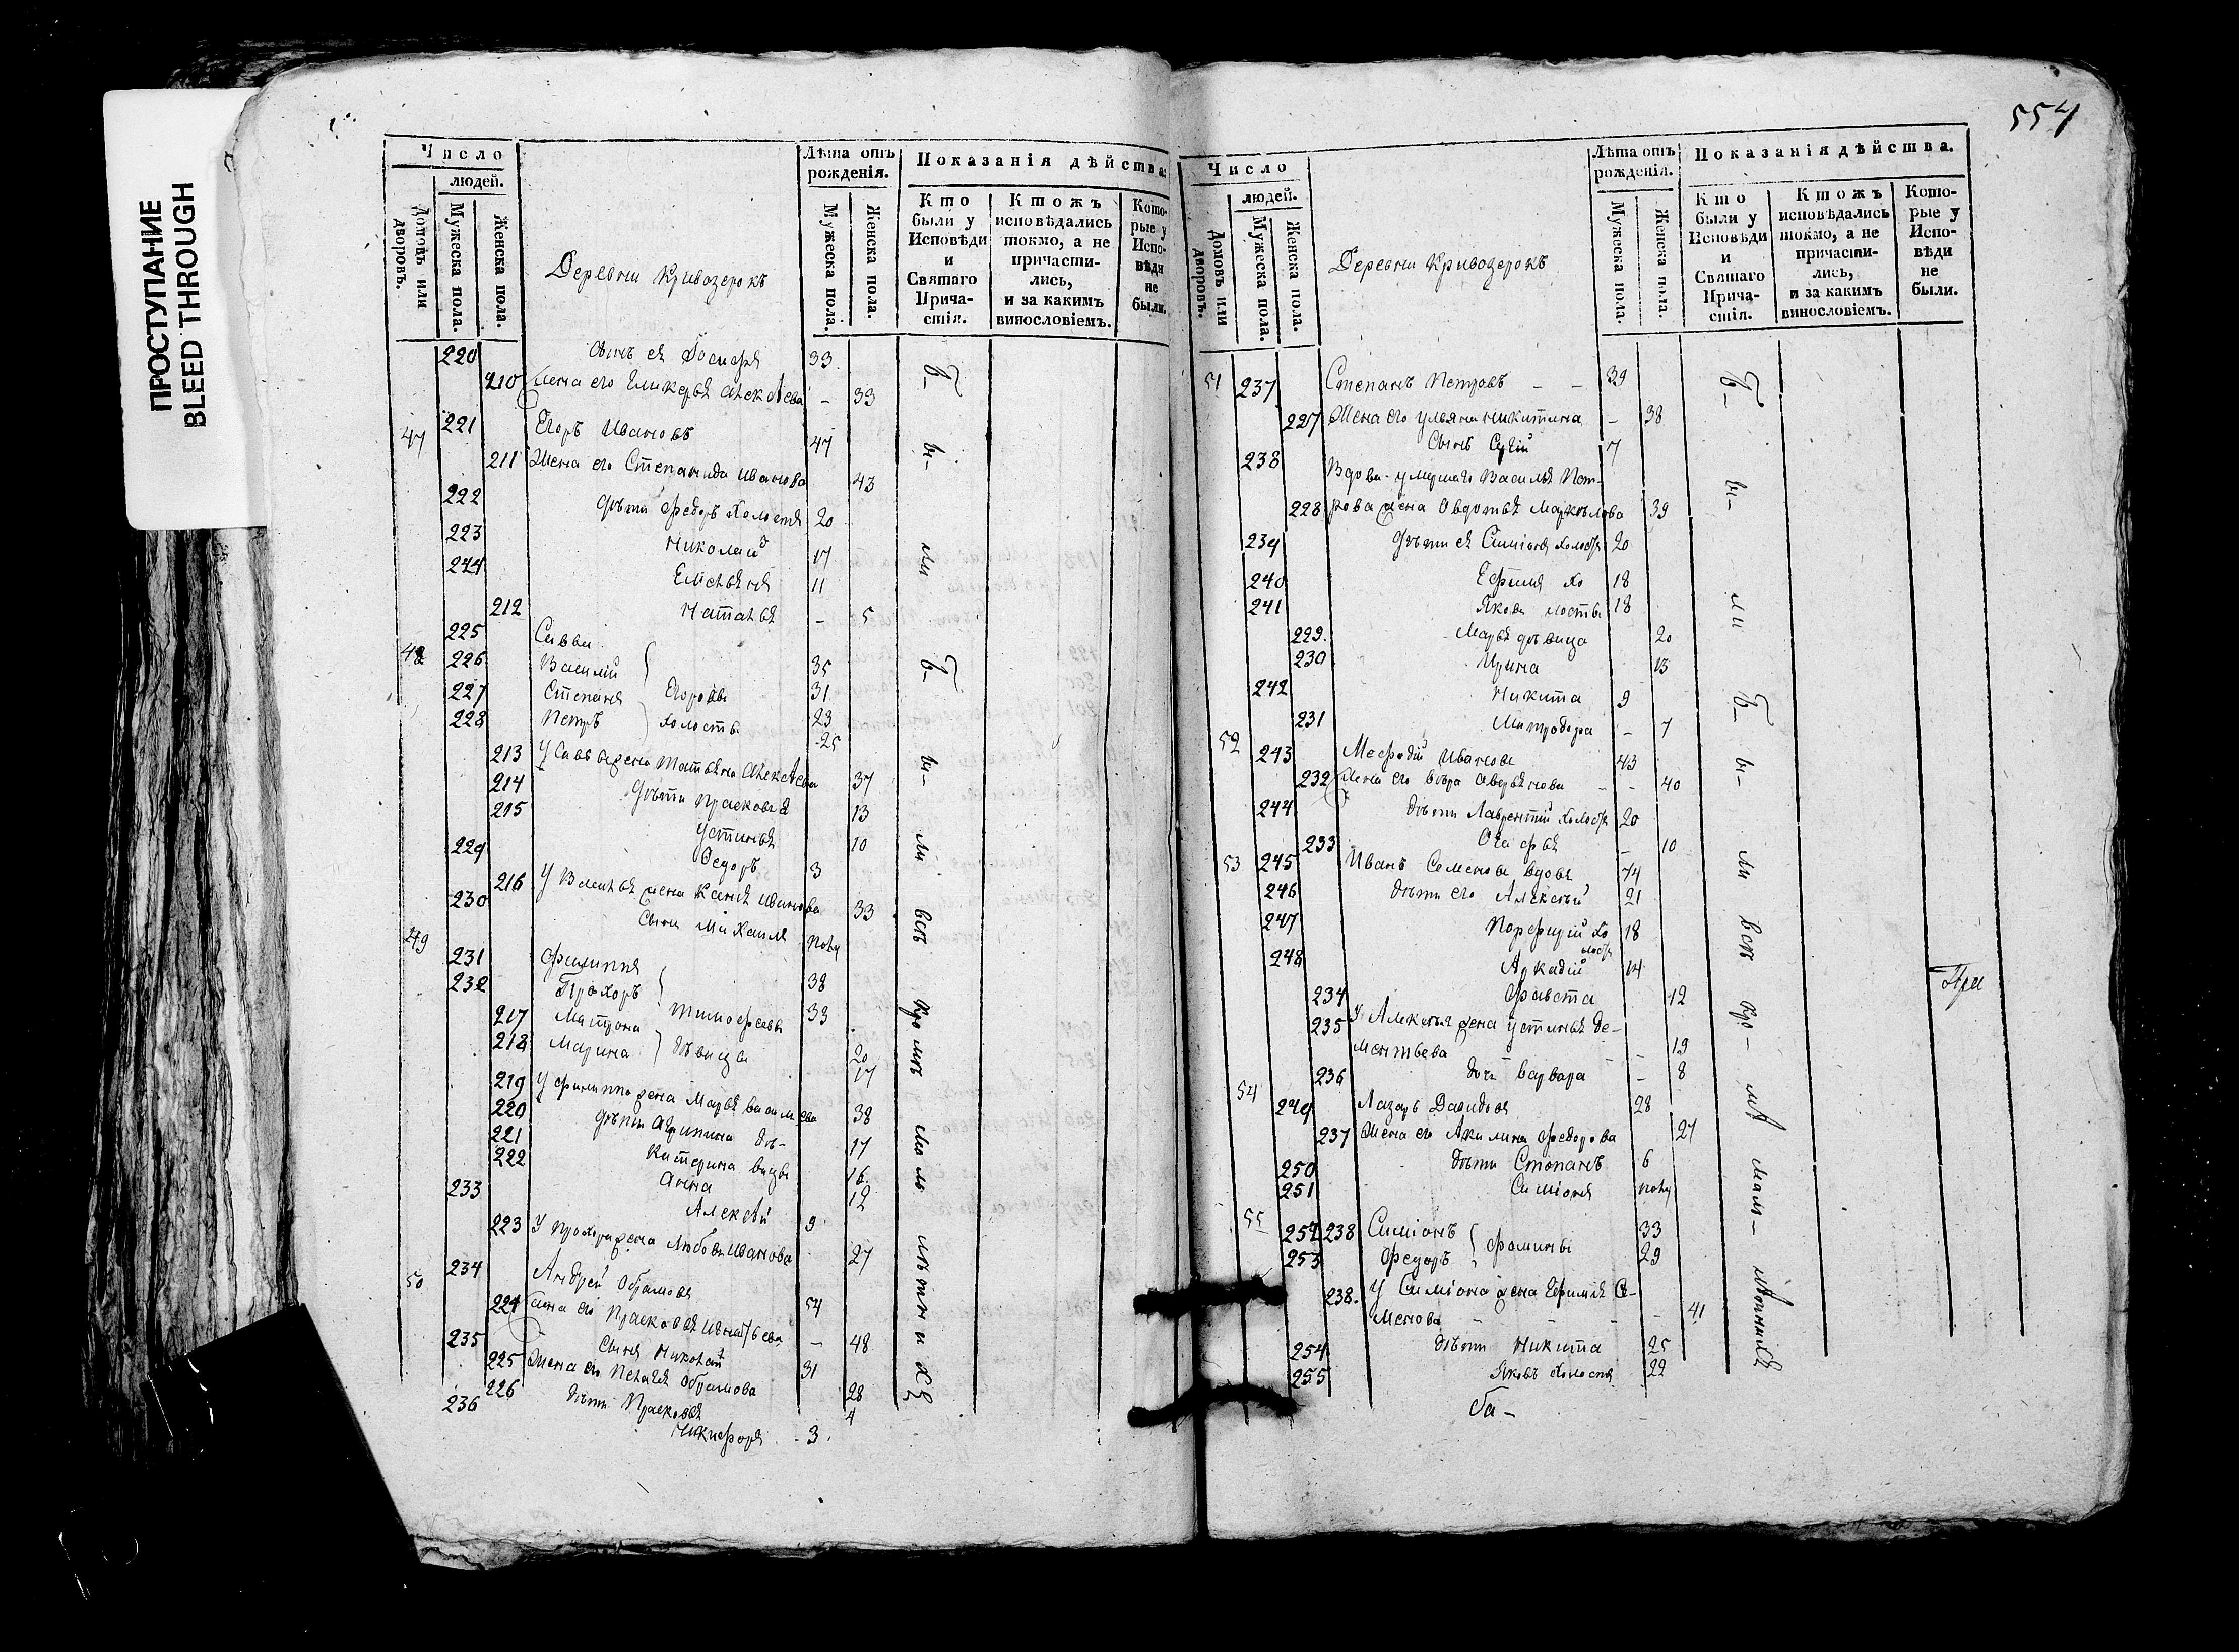 ПРОСТУПАНИЕ
BLEED THROUGH
Число
людей.
Домовъ или дворовъ.
Мужеска пола.
Женска пола.
Деревни Кривозерокъ
Лѣта отъ рожденія.
Мужеска пола.
Женска пола.
Показанія дѣйства:
Кто были у Исповѣди и Святаго Причастія.
Ктожъ исповѣдались токмо, а не причастились, и за какимъ винословіемъ.
Которые у Исповѣди не были.
220 сынъ ея 33
210 жена его Гликерья Алексѣева – 33
47 221 Егоръ Ивановъ 47
211 Жена его Степанида Иванова 43
222 дѣти Федоръ холостъ 20
223 Николай 17
244 Емельянъ 11
212 Наталья – 5
48 225 Савва 35
226 Василий 31
227 Степанъ Егоровы 23
228 Петръ холосты 25
213 У Саввы жена Татьяна Алексѣева 37
214 дѣти Прасковья 13
215 Устинья 10
229 Федоръ 3
216 У Василья жена Ксенья Иванова 33
230 Сынъ Михаилъ полу
49 231 Филиппъ 38
232 Прохоръ Тимофеевы 33
217 Матрона 20
218 Марина дѣвицы 17
219 У Филиппа жена Марья Васильева 38
220 дѣти Агрипина дѣ- 17
221 Катерина вицы 16
222 Анна 12
233 Алексѣй 9
223 У Прохора жена Любовь Иванова 27
50 234 Андрей Обрамовъ 54
224 жена его Прасковья Игнатьева – 48
235 Сынъ Николай 31
225 Жена его Пелагея Обрамова 28
226 дѣти Прасковья 4
236 Никифоръ 3
Бы- ли
Бы- ли всѣ кромѣ малолѣтнихъ
554
Число
людей.
Домовъ или дворовъ.
Мужеска пола.
Женска пола.
Деревни Кривозерокъ
Лѣта отъ рожденія.
Мужеска пола.
Женска пола.
Показанія дѣйства.
Кто были у Исповѣди и Святаго Причастія.
Ктожъ исповѣдались токмо, а не причастились, и за каким винословіемъ.
Которые у Исповѣди не были.
51 237 Степанъ Петровъ – – 39
227 Жена его Ульяна Никитина – 38
238 Сынъ Сергій 7
Вдова умершаго Василья Пет-
228 рова жена Овдотья Маркелова 39
239 дѣти ея Симіонъ холостъ 20
240 Ефимъ хо 18
241 Яковъ лосты 18
229 Марья дѣвица 20
230 Ирина 13
242 Никита 9
231 Митродора – 7
52 243 Мефодій Ивановъ 43
232 жена его Вѣра Аверьянова – – 40
244 дѣти Лаврентій холостъ 20
233 – 10
53 245 Иванъ Семеновъ вдовъ 74
246 дѣти его Алексѣй 21
247 Порфирій хо 18
лостъ
248 Аркадій 14
234 Фавста 12
235 У Алексѣя жена Устинья Де-
ментьева – – 19
236 дочь Варвара – 8
54 249 Лазарь Давидовъ 28
237 Жена его Акилина Федорова 27
250 дѣти Степанъ 6
251 Симіонъ полу
55 252 238 Симіонъ 33
253 Федоръ Фомины 29
238. У Симіона жена Ефимья Се-
менова – – – – – 41
254 дѣти Никита 25
255 Яковъ холостъ 22
Бы- ли
Бы- ли всѣ кро- мѣ мало- лѣтнихъ
При
ба-